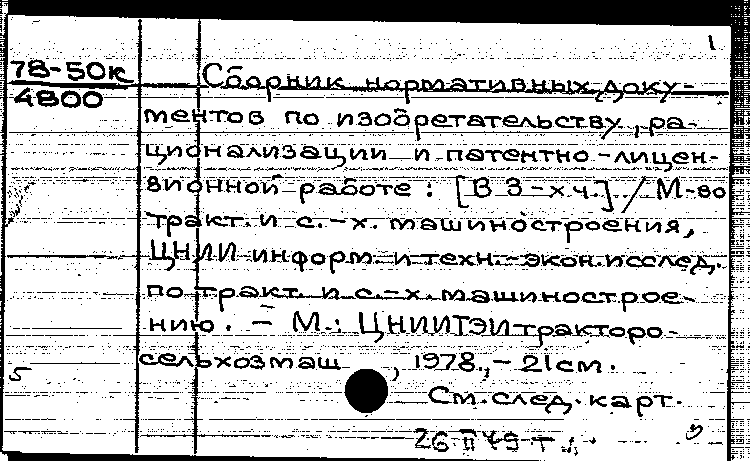 1
78-50к
4800
Сборник нормативных доку-
ментов по изобретательству, ра-
ционализации и патентно-лицен-
зионной работе: [В 3-х ч.]. / М-во
тракт. и с.-х. машиностроения,
ЦНИИ информ. и техн.-экон. исслед.
по тракт. и с.-х. машинострое-
нию. – М.: ЦНИИТЭИтракторо-
сельхозмаш, 1978. – 21 см.
5
См. след. карт.
26 II 79 т